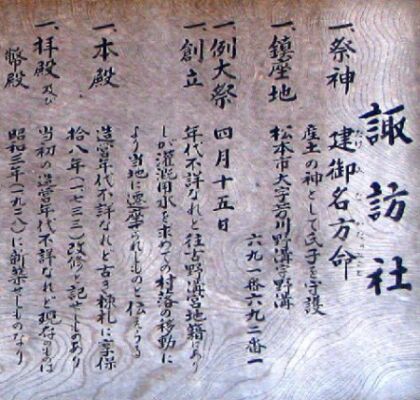 諏訪社
一、祭神 建御名方命
産土の神として氏子を守護
一、鎮座地 松本市大字芳川野溝字野溝
六九一番六九二番一
一、例大祭 四月十五日
一、創立 年代不詳なれど往古野溝宮地籍にあり
しが灌漑用水を求めての村落の移動に
より当地に遷座されしものと伝えらる
一、本殿 造営年代不詳なれど古き棟札に享保
拾八年(一七三三)改修と記せしものあり
一、拝殿及び 当初の造営年代不詳なれど現存のものは
幣殿 昭和三年(一九二八)に新築せしものなり